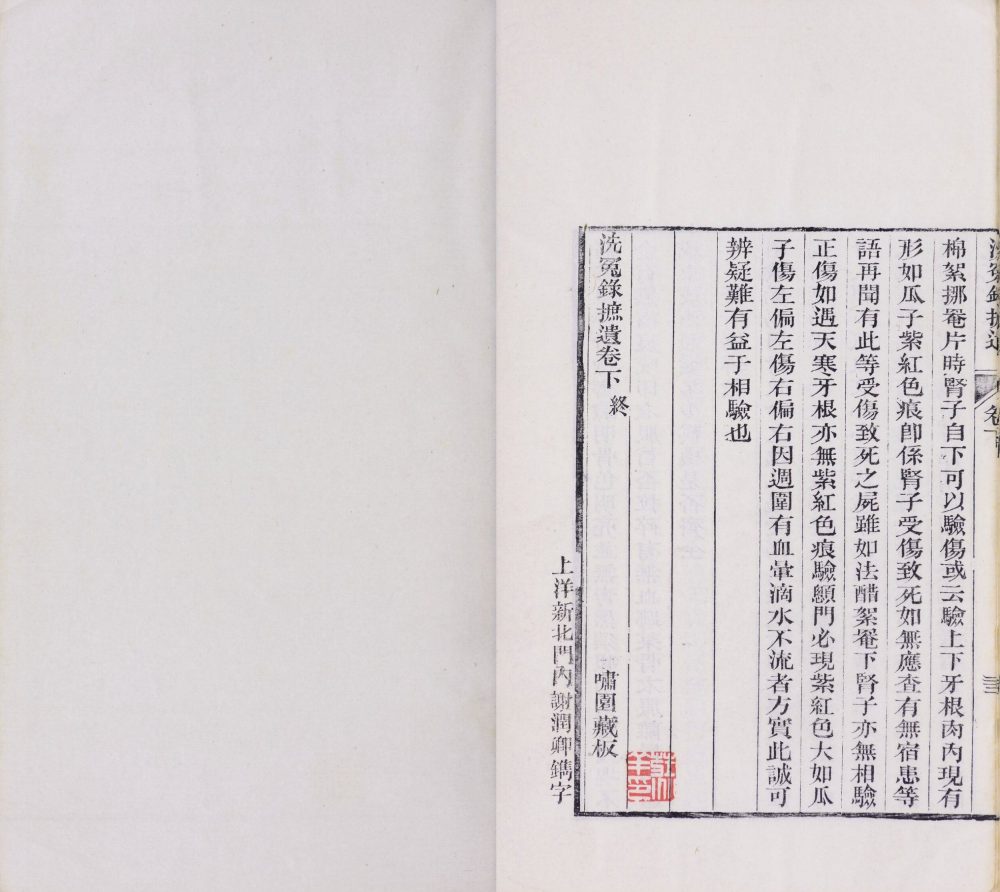 洗冤錄摭遺
卷下
棉絮挪罨片時腎子自下可以驗傷或云驗上下牙根肉內現有
形如瓜子紫紅色痕卽係腎子受傷致死如無應查有無宿患等
語再聞有此等受傷致死之屍雖如法醋絮罨下腎子亦無相驗
正傷如遇天寒牙根亦無紫紅色痕驗顖門必現紫紅色大如瓜
子傷左偏左傷右偏右因週圍有血暈滴水不流者方實此誠可
辨疑難有益于相驗也
洗冤錄摭遺卷下終
嘯園藏板
上洋新北門內謝潤卿鐫字